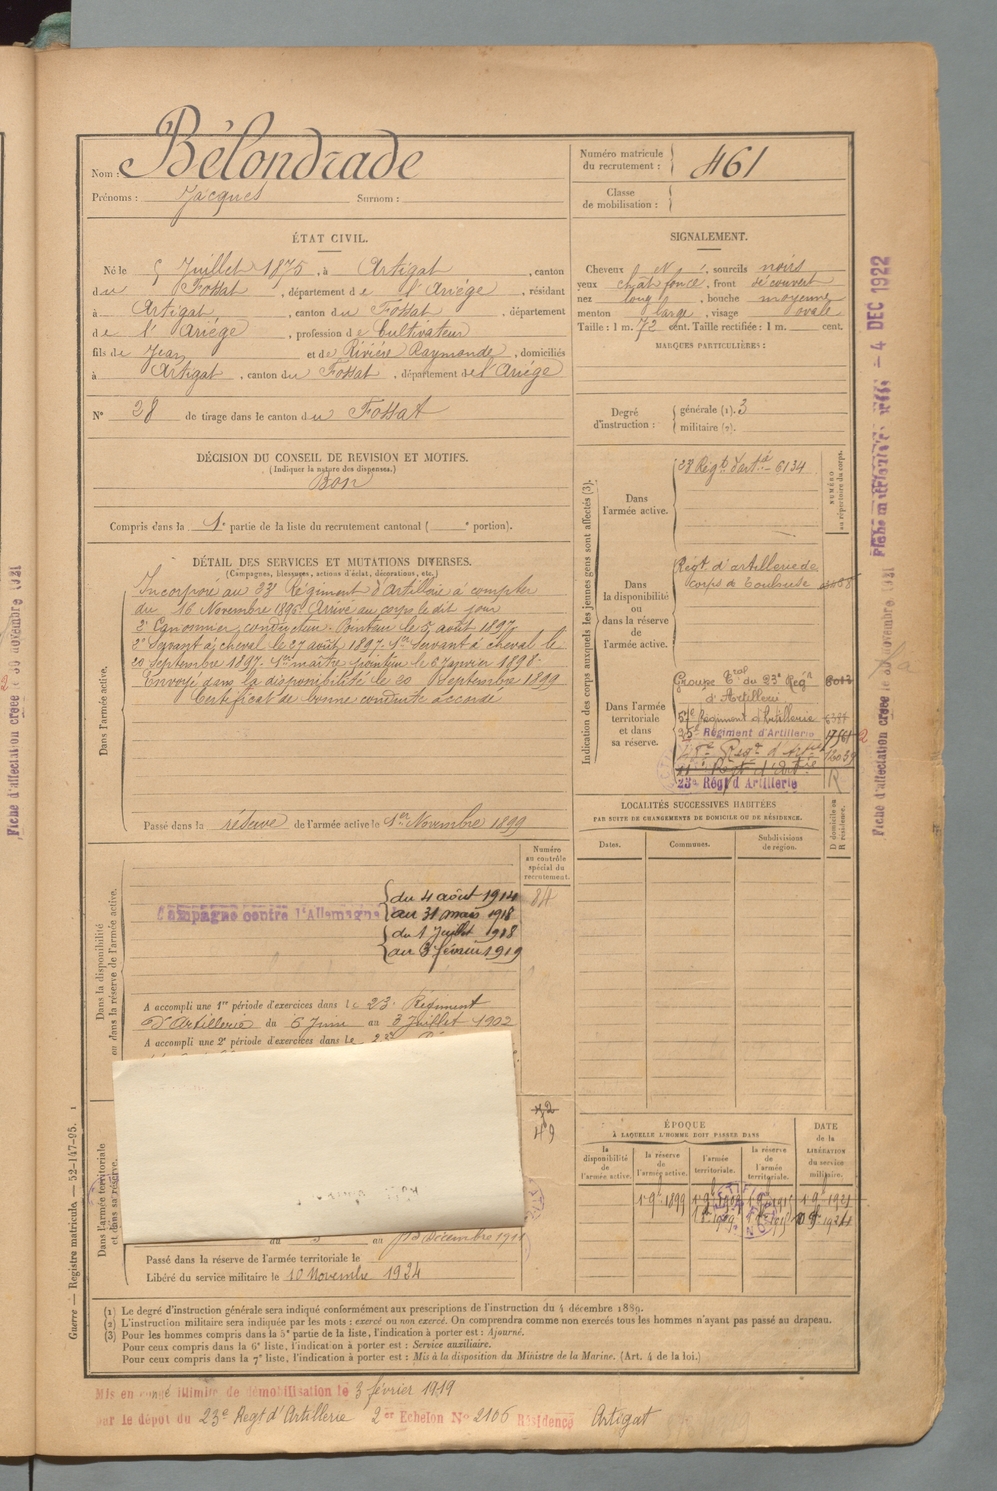 Nom : Bélondrade
Prénoms : Jacques Surnom :
Numéro matricule
du recrutement : 461
Classe
de mobilisation :
ÉTAT CIVIL.
Né le 5 Juillet 1875, à Artigat, canton
du Fossat, département de l'Ariége, résidant
à Artigat, canton du Fossat, département
de l'Ariége, profession de Cultivateur
fils de Jean et de Rivière Raymonde, domiciliés
à Artigat, canton du Fossat, département de l'Ariége
N° 28 de tirage dans le canton du Fossat
SIGNALEMENT.
Cheveux N, sourcils noirs
yeux chât foncé, front découvert
nez long, bouche moyenne
menton large, visage ovale
Taille : 1 m. 72 cent. Taille rectifiée : 1 m. cent.
MARQUES PARTICULIÈRES :
Degré
d'instruction :
générale (1). 3
militaire (2).
DÉCISION DU CONSEIL DE REVISION ET MOTIFS.
(Indiquer la nature des dispenses.)
Bon
Compris dans la 1e partie de la liste du recrutement cantonal ( e portion).
DÉTAIL DES SERVICES ET MUTATIONS DIVERSES.
(Campagnes, blessures, actions d'éclat, décorations, etc.)
Dans l'armée active.
Incorporé au 23e Régiment d'Artillerie à compter
du 16 Novembre 1896 Arrivé au corps le dit jour
2e Canonnier conducteur. Pointeur le 5 août 1897
2e Servant à cheval le 27 août 1897. 1er Servant à cheval le
20 Septembre 1897. 1er maître pointeur le 6 Janvier 1898.
Envoyé dans la disponibilité le 20 Septembre 1899
Certificat de bonne conduite accordé
Passé dans la réserve de l'armée active le 1er Novembre 1899
Indication des corps auxquels les jeunes gens sont affectés (3).
NUMÉRO
au répertoire du corps.
Dans
l'armée active.
23e Régt d'artie - 6134
Dans
la disponibilité
ou
dans la réserve
de
l'armée active.
Régt d'artillerie de
corps de Toulouse
Dans l'armée
territoriale
et dans
sa réserve.
Groupe Tral du 23e Régt
d'Artillerie
57e Régiment d'Artillerie
Régiment d'Artillerie 17561
23e Régt d'Artillerie R
Dans la disponibilité
ou dans la réserve de l'armée active.
Numéro
au contrôle
spécial du
recrutement.
84
Campagne contre l'Allemagne
du 4 août 1914
au 31 mars 1918
du 1 Juillet 1918
au 3 février 1919
A accompli une 1re période d'exercices dans le 23e Régiment
d'Artillerie du 6 Juin au 3 Juillet 1902
A accompli une 2e période d'exercices dans le 23e
LOCALITÉS SUCCESSIVES HABITÉES
PAR SUITE DE CHANGEMENTS DE DOMICILE OU DE RÉSIDENCE.
Dates. Communes. Subdivisions
de région.
D domicile ou
R résidence.
Dans l'armée territoriale
et dans sa réserve.
49
du au 13 Décembre 1911
Passé dans la réserve de l'armée territoriale le
Libéré du service militaire le 10 Novembre 1924
ÉPOQUE
À LAQUELLE L'HOMME DOIT PASSER DANS
DATE
de la
LIBÉRATION
du service
militaire.
la
disponibilité
de l'armée
active.
la réserve
de
l'armée active.
l'armée
territoriale.
la réserve
de
l'armée
territoriale.
1er 9bre 1899
(1) Le degré d'instruction générale sera indiqué conformément aux prescriptions de l'instruction du 4 décembre 1889.
(2) L'instruction militaire sera indiquée par les mots : exercé ou non exercé. On comprendra comme non exercés tous les hommes n'ayant pas passé au drapeau.
(3) Pour les hommes compris dans la 5e partie de la liste, l'indication à porter est : Ajourné.
Pour ceux compris dans la 6e liste, l'indication à porter est : Service auxiliaire.
Pour ceux compris dans la 7e liste, l'indication à porter est : Mis à la disposition du Ministre de la Marine. (Art. 4 de la loi.)
Mis en congé illimité de démobilisation le 3 février 1919
par le dépot du 23e Regt d'Artillerie 2er Echelon No 2106 Résidence Artigat
Guerre — Registre matricule. — 52-147-95. 1
Fiche d'affectation créée le 30 novembre 1921
4 DEC 1922
Fiche d'affectation créée le 30 novembre 1921